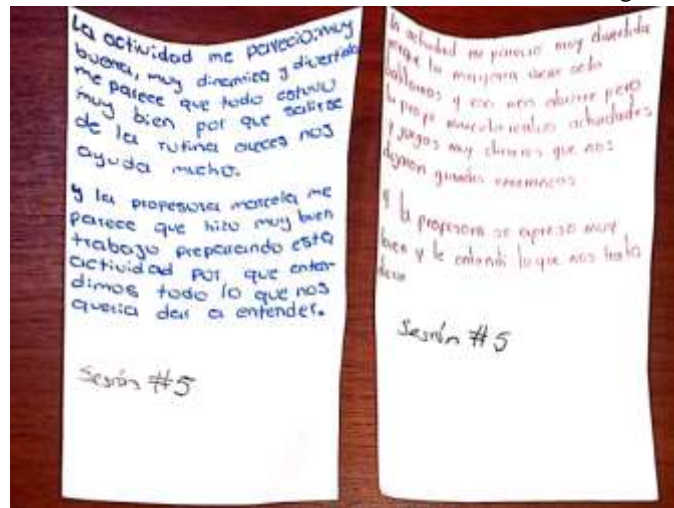 La actividad me pareció; muy
buena, muy dinamica y divertida
me parece que todo estuvo
muy bien por que salirse
de la rutina aveces nos
ayuda mucho.
y la profesora marcela me
parece que hizo muy bien
trabajo preparando esta
actividad por que enten-
dimos todo lo que nos
queria dar a entender.
Sesión #5
la actividad me parecio muy divertida
porque la mayoria veces solo
hablamos y eso nos aburre pero
la profe marcela realizo actividades
y juegos muy chéveres que nos
dejaron grandes enseñanzas
y la profesora se expreso muy
bien y le entendi lo que nos
Sesión #5